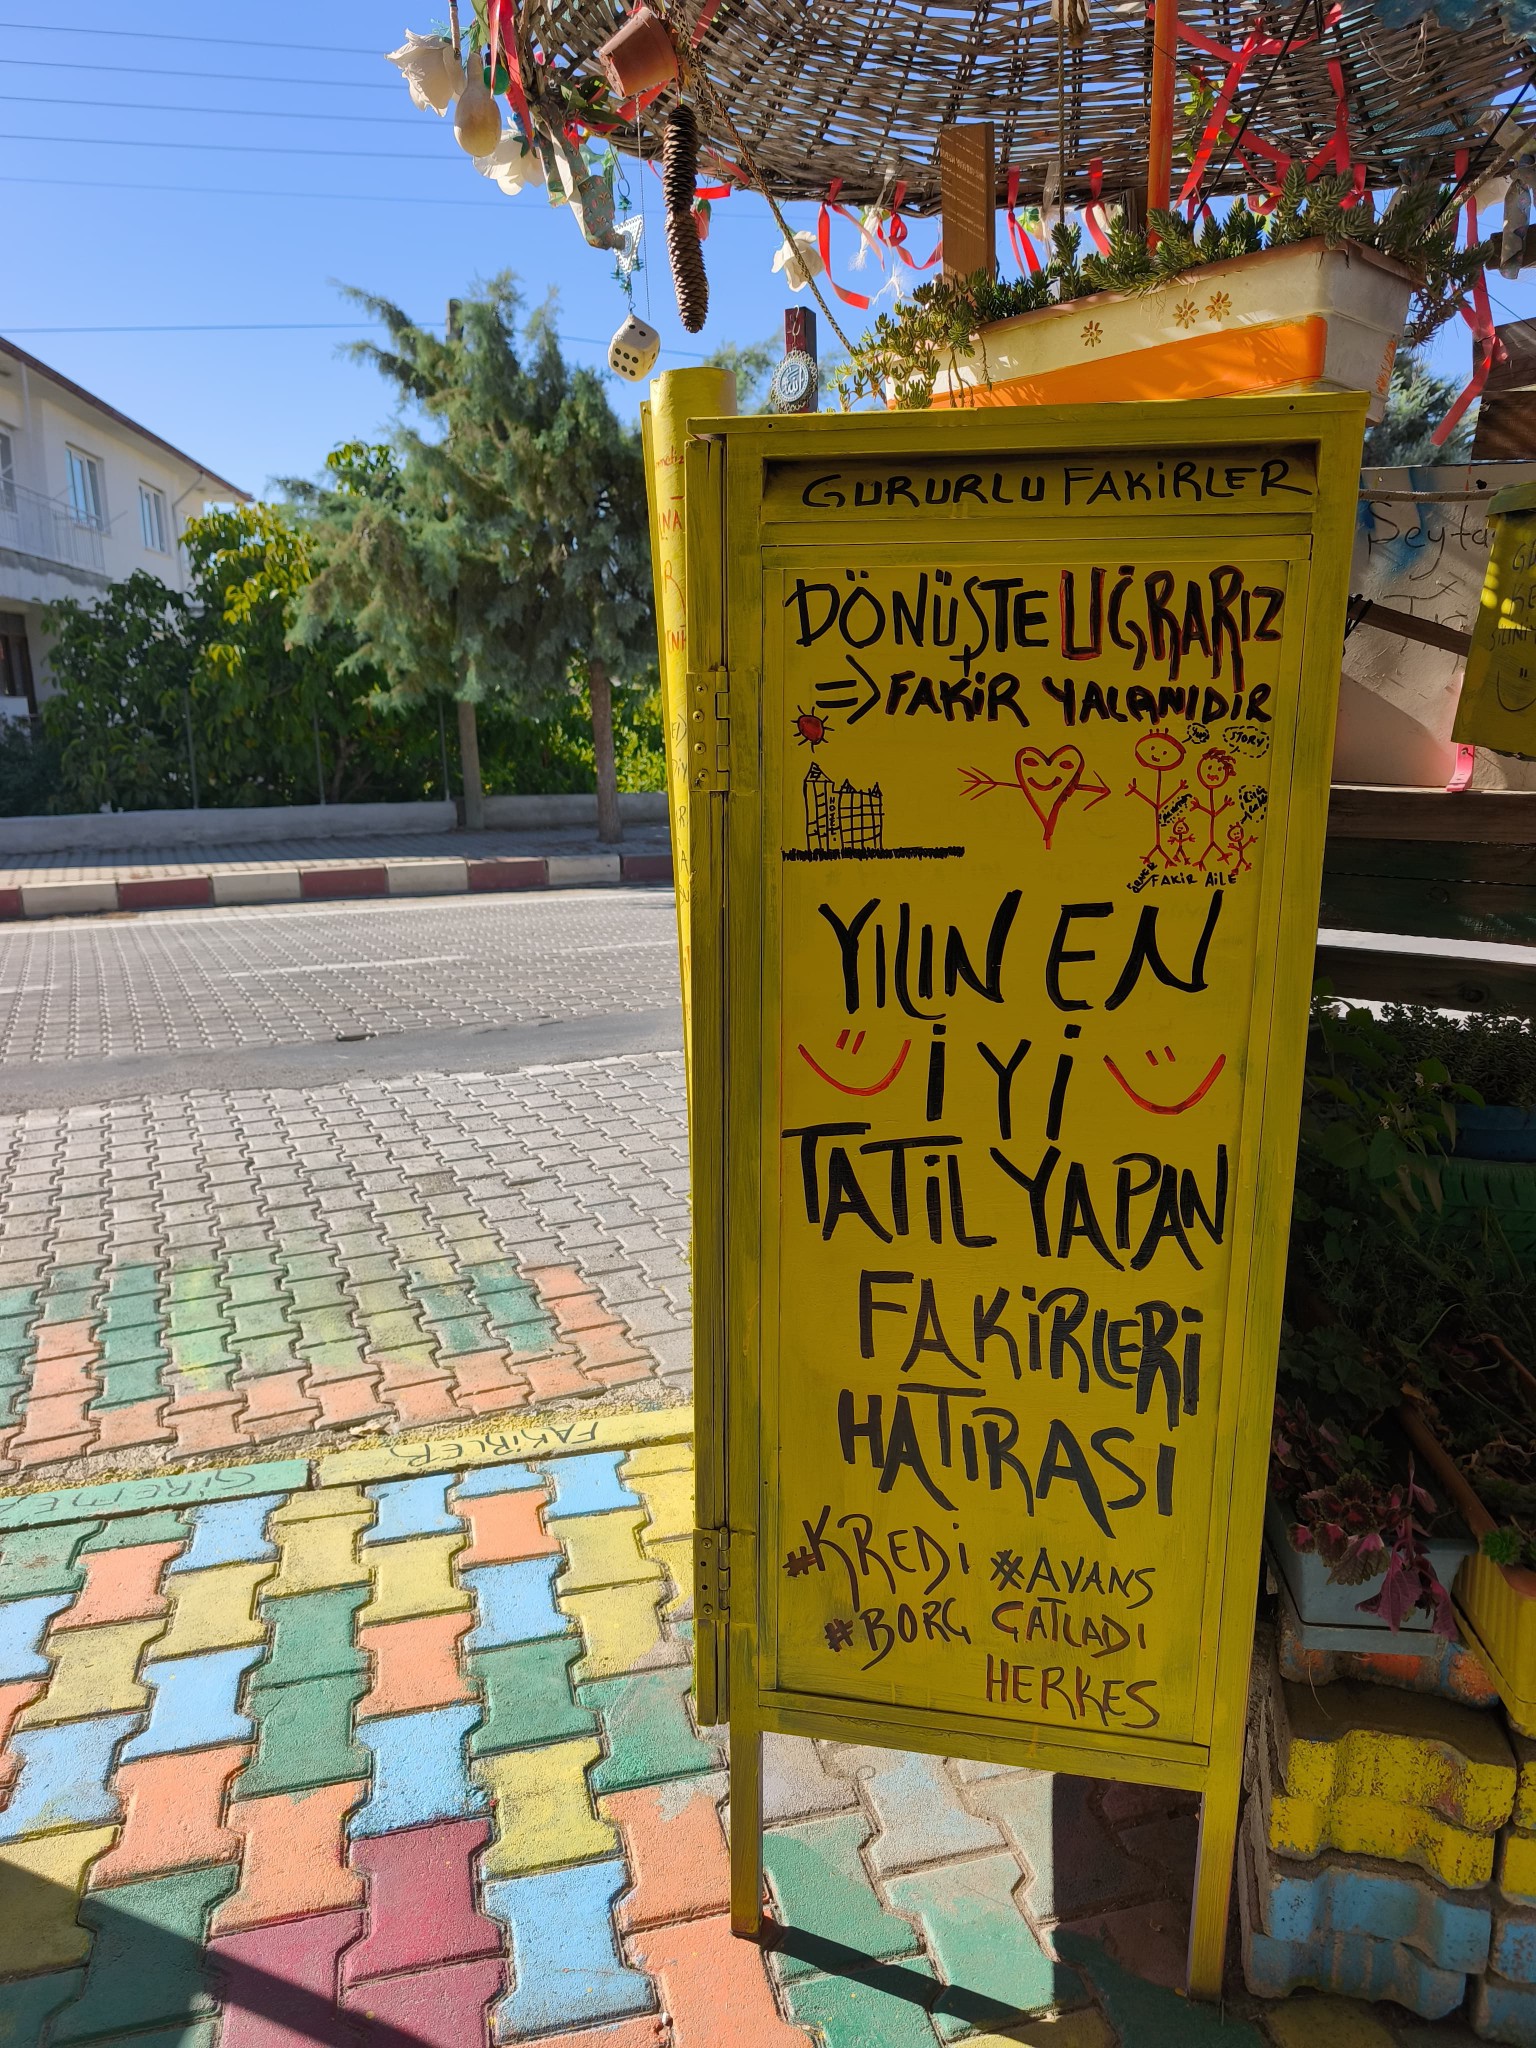 GURURLU FAKİRLER
DÖNÜŞTE UĞRARIZ
=> FAKİR YALANIDIR
STORY
HOTEL
FAKİR AİLE
YILIN EN
İYİ
TATİL YAPAN
FAKİRLERİ
HATIRASI
#KREDİ #AVANS
#BORÇ ÇATLADI
HERKES
FAKİRLER
GİREMEZ
Seyta